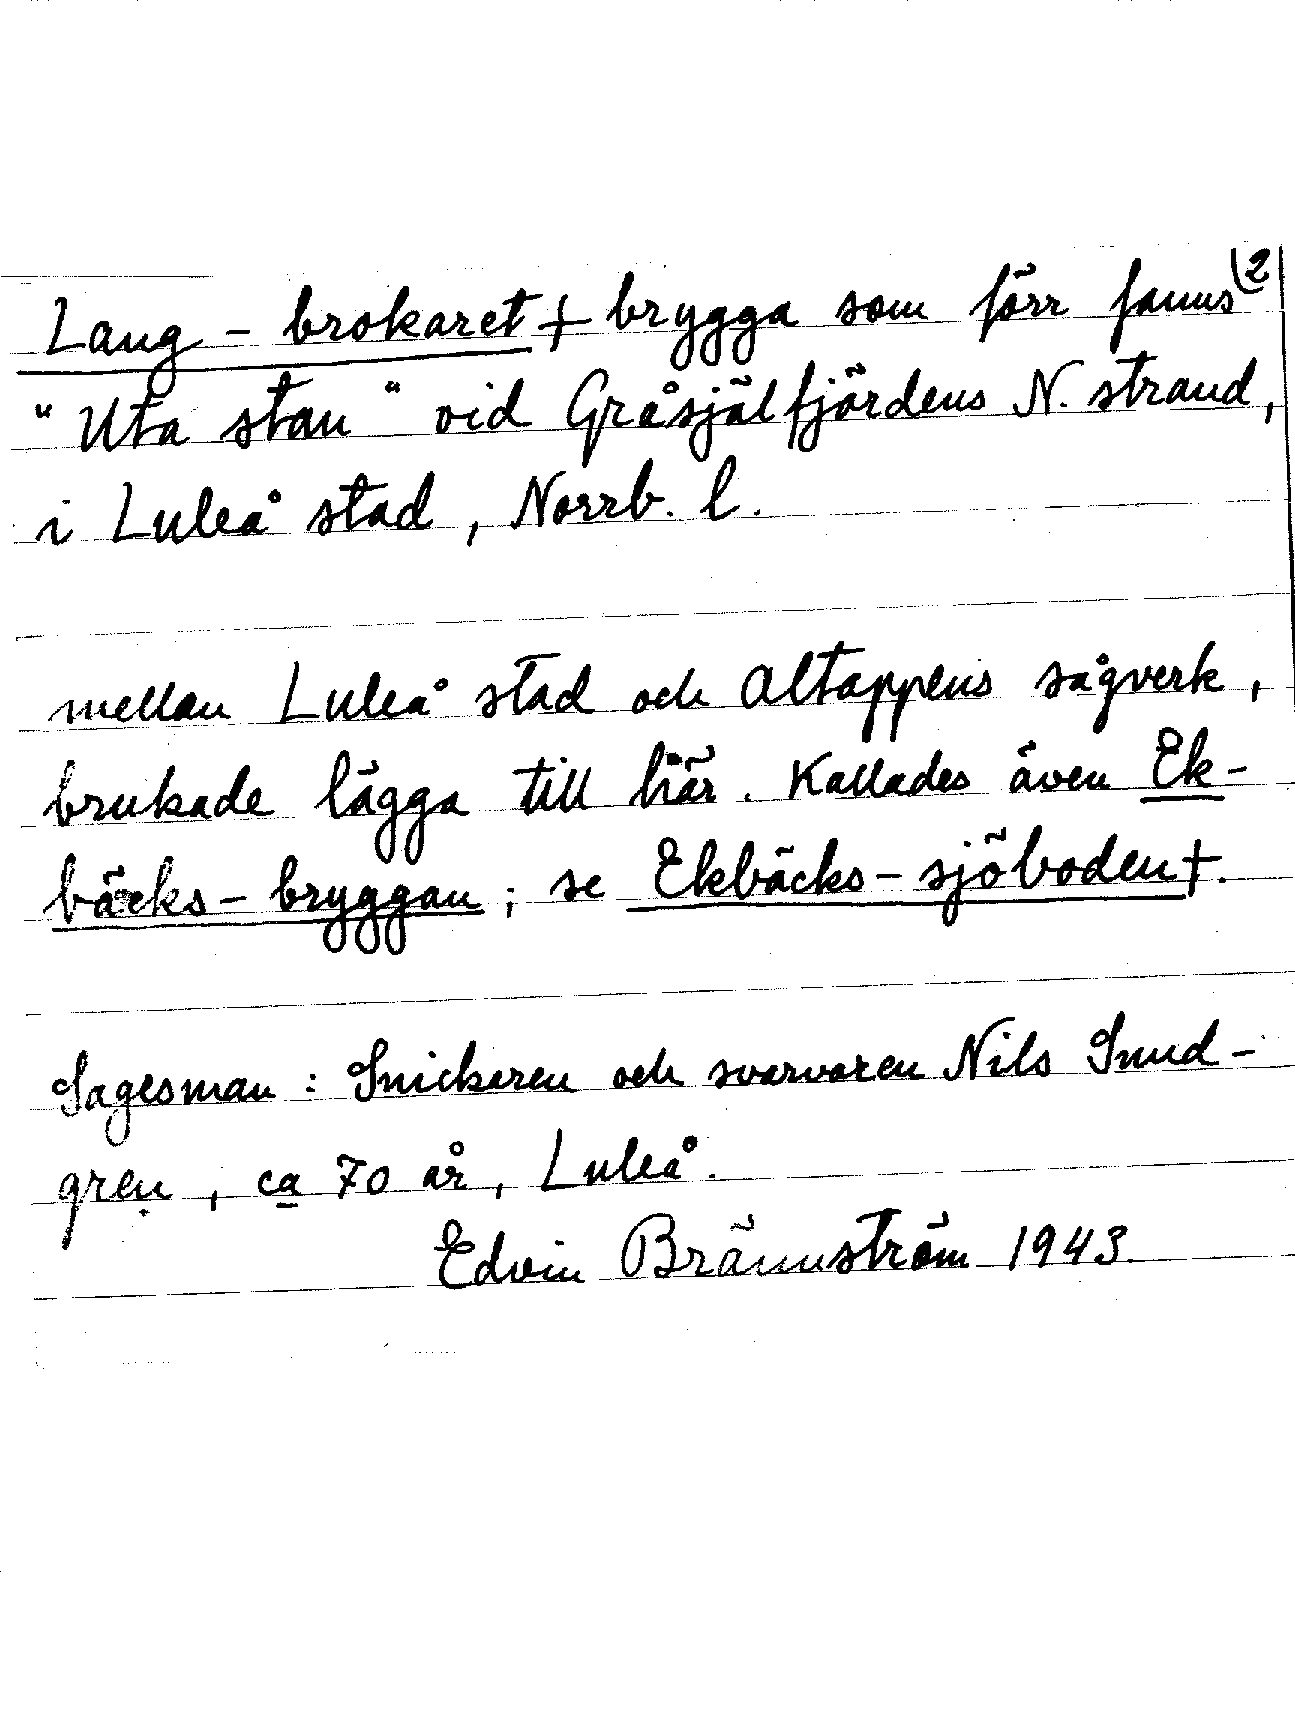 Lang - brokaret + brygga som förr fanns (2
"Uta stan" vid Gråsjälfjärdens N. strand,
i Luleå stad, Norrb. l.
mellan Luleå stad och Altappens sågverk,
brukade lägga till här. Kallades även Ek-
bäcks - bryggan; se Ekbäcks - sjöboden +.
Sagesman: Snickaren och svarvaren Nils Sund-
gren, ca 70 år, Luleå.
Edvin Brännström 1943.